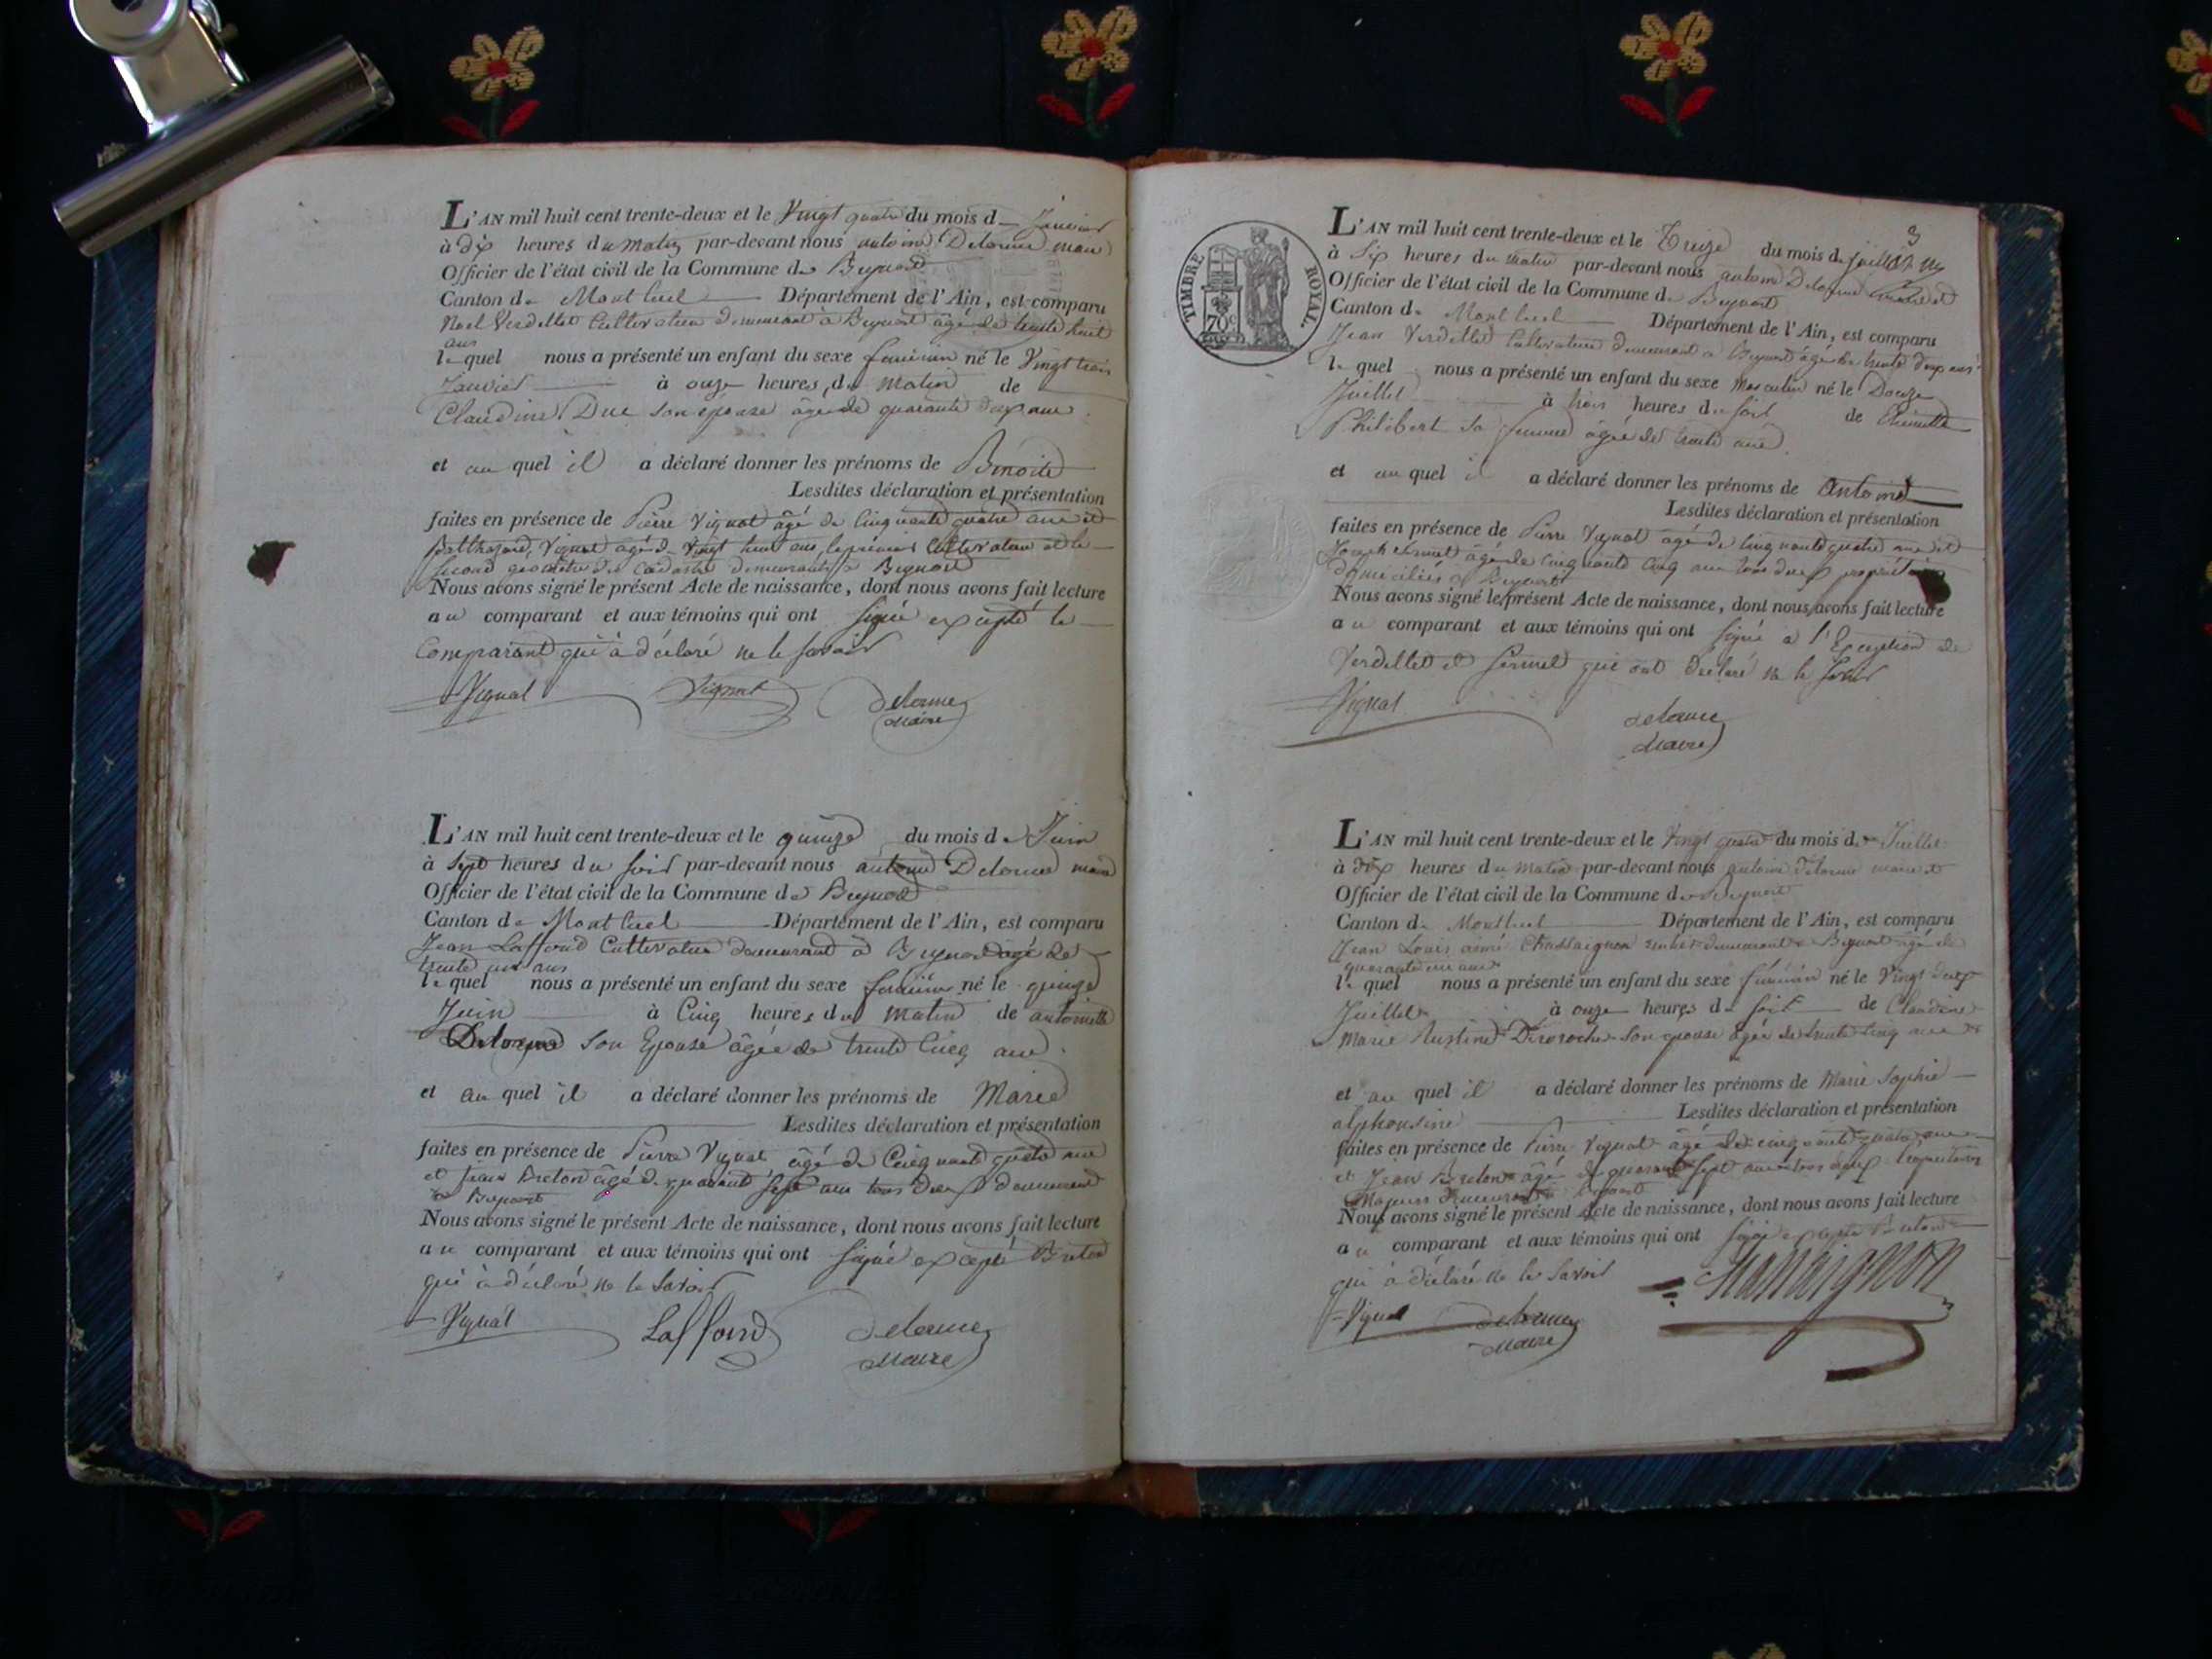 L'AN mil huit cent trente-deux et le Vingt quatre du mois de Janvier
à dix heures du matin par-devant nous antoine Delorme maire
Officier de l'état civil de la Commune de Beynost
Canton de Montluel Département de l'Ain, est comparu
Noel Verdellet Cultivateur demeurant à Beynost âgé de trente huit
ans
lequel nous a présenté un enfant du sexe feminin né le Vingt trois
Janvier à onze heures du matin de
Claudine Duc son épouse âgée de quarante deux ans
et au quel il a déclaré donner les prénoms de Benoite
Lesdites déclaration et présentation
faites en présence de Pierre Vignat âgé de Cinquante quatre ans et
Balthazard Vignat âgé de Vingt huit ans, le premier Cultivateur et le
second géomètre du Cadastre demeurants à Beynost
Nous avons signé le présent Acte de naissance, dont nous avons fait lecture
au comparant et aux témoins qui ont signé excepté le
Comparant qui à déclaré ne le savoir
Vignat Vignat Delorme
Maire
L'AN mil huit cent trente-deux et le quinze du mois de Juin
à Sept heures du soir par-devant nous antoine Delorme maire
Officier de l'état civil de la Commune de Beynost
Canton de Montluel Département de l'Ain, est comparu
Jean Laffond Cultivateur demeurant à Beynost âgé de
trente ans
lequel nous a présenté un enfant du sexe feminin né le quinze
Juin à Cinq heures du matin de antoinette
Delorme son Epouse âgée de trente Cinq ans
et au quel il a déclaré donner les prénoms de Marie
Lesdites déclaration et présentation
faites en présence de Pierre Vignat âgé de Cinquante quatre ans
et Jean Breton âgé de quarante sept ans tous deux demeurant
à Beynost
Nous avons signé le présent Acte de naissance, dont nous avons fait lecture
au comparant et aux témoins qui ont signé excepté Breton
qui à déclaré ne le savoir
Vignat Laffond Delorme
Maire
3
TIMBRE ROYAL.
70c
L'AN mil huit cent trente-deux et le Treize du mois de juillet
à Six heures du matin par-devant nous antoine Delorme maire et
Officier de l'état civil de la Commune de Beynost
Canton de Montluel Département de l'Ain, est comparu
Jean Verdellet Cultivateur demeurant à Beynost âgé de trente deux ans
lequel nous a présenté un enfant du sexe Masculin né le Douze
Juillet à trois heures du soir de
Philibert sa femme âgée de trente ans
et au quel il a déclaré donner les prénoms de Antoine
Lesdites déclaration et présentation
faites en présence de Pierre Vignat âgé de Cinquante quatre ans et
Joseph Sermet âgé de Cinquante Cinq ans tous deux propriétaires
domiciliés à Beynost
Nous avons signé le présent Acte de naissance, dont nous avons fait lecture
au comparant et aux témoins qui ont signé à l'Exception de
Verdellet et Sermet qui ont declaré ne le savoir
Vignat Delorme
Maire
L'AN mil huit cent trente-deux et le Vingt quatre du mois de Juillet
à dix heures du matin par-devant nous antoine Delorme maire et
Officier de l'état civil de la Commune de Beynost
Canton de Montluel Département de l'Ain, est comparu
Jean Louis aimé Chassaignon demeurant à Beynost âgé de
quarante ans
lequel nous a présenté un enfant du sexe féminin né le Vingt deux
Juillet à onze heures du soir de Claudine
Marie son epouse âgée de trente cinq ans
et au quel il a déclaré donner les prénoms de Marie Sophie
alphonsine Lesdites déclaration et présentation
faites en présence de Pierre Vignat âgé de cinquante quatre ans
et Jean Breton âgé de quarante sept ans tous deux
Majeurs demeurant à Beynost
Nous avons signé le présent Acte de naissance, dont nous avons fait lecture
au comparant et aux témoins qui ont signé excepté Breton
qui à déclaré ne le savoir
Vignat Delorme Chassaignon
Maire